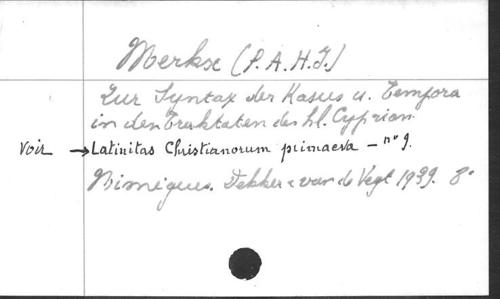 Merkx (P. A. H. J.)
Zur Syntax der Kasus u. Tempora
in den Traktaten des hl. Cyprian.
Voir → Latinitas Christianorum primaeva – n° 9.
Nimègue. Dekker & van de Vegt 1939. 8°